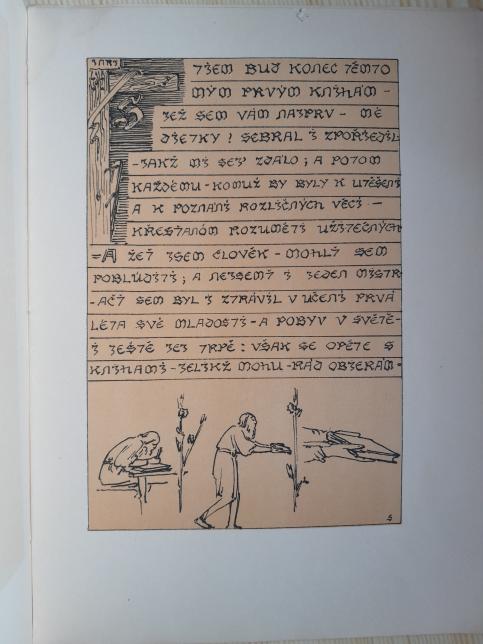 TIEM BUĎ KONEC TĚMTO
MÝM PRVÝM KNIHÁM -
JEŽ SEM VÁM NAJPRV - MÉ
DIETKY! SEBRAL I ZPOŘIEDIL
- JAKŽ MI SEJ' ZDÁLO; A POTOM
KAŽDÉMU - KOMUŽ BY BYLY K UTĚŠENÍ
A K POZNÁNÍ ROZLIČNÝCH VĚCÍ -
KŘESŤANÓM ROZUMĚTI UŽITEČNÝCH
= A ŽEŤ JSEM ČLOVĚK - MOHLŤ SEM
POBLÚDITI; A NEJSEMŤ I JEDEN MISTR
- AČŤ SEM BYL I ZTRÁVIL V UČENÍ PRVÁ
LÉTA SVÉ MLADOSTI - A POBYV V SVĚTĚ -
I JEŠTĚ JEJ TRPĚ: VŠAK SE OPĚTE S
KNIHAMI - JELIKŽ MOHU - RÁD OBIERÁM -
5